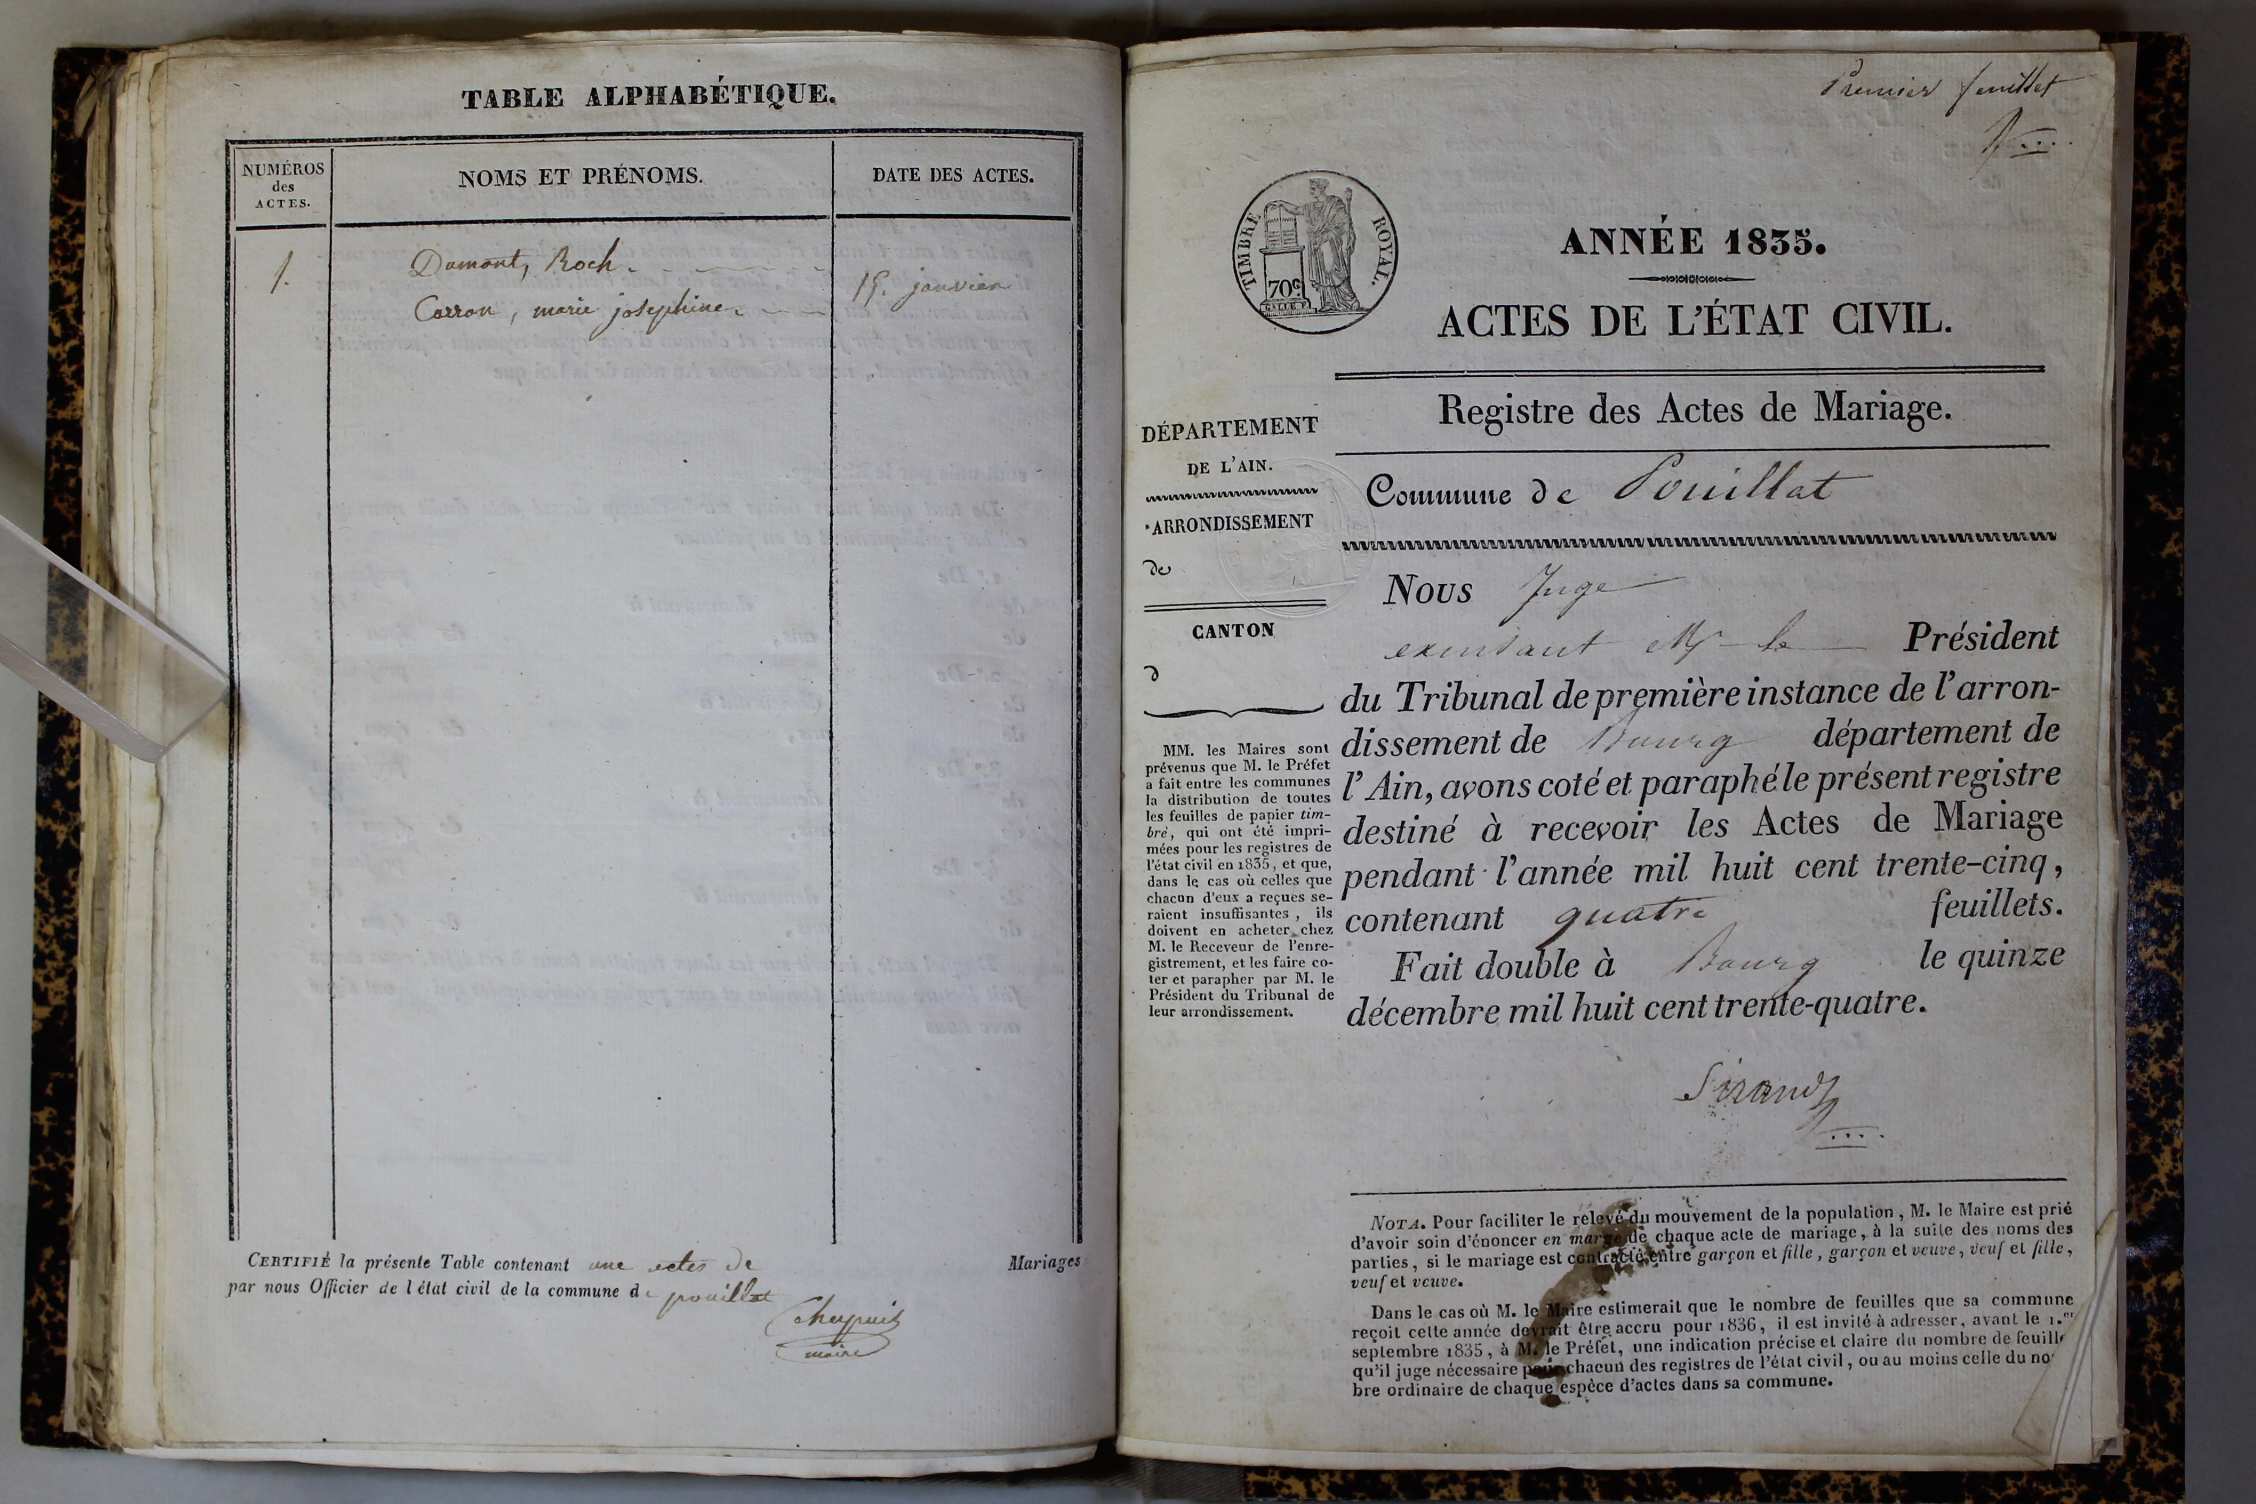 TABLE ALPHABÉTIQUE.
NUMÉROS
des
ACTES.
NOMS ET PRÉNOMS.
DATE DES ACTES.
1.
Damant, Roch
15. janvier
Carron, marie josephine
CERTIFIÉ la présente Table contenant une actes de Mariages
par nous Officier de l'état civil de la commune de pouillat
Chapuis
maire
Premier feuillet
TIMBRE ROYAL.
70c
ANNÉE 1835.
ACTES DE L'ÉTAT CIVIL.
Registre des Actes de Mariage.
DÉPARTEMENT
DE L'AIN.
ARRONDISSEMENT
de
CANTON
d
MM. les Maires sont
prévenus que M. le Préfet
a fait entre les communes
la distribution de toutes
les feuilles de papier tim-
bré, qui ont été impri-
mées pour les registres de
l'état civil en 1835, et que,
dans le cas où celles que
chacun d'eux a reçues se-
raient insuffisantes, ils
doivent en acheter chez
M. le Receveur de l'enre-
gistrement, et les faire co-
ter et parapher par M. le
Président du Tribunal de
leur arrondissement.
Commune de Pouillat
Nous Juge
exerçant Mr le Président
du Tribunal de première instance de l'arron-
dissement de Bourg département de
l'Ain, avons coté et paraphé le présent registre
destiné à recevoir les Actes de Mariage
pendant l'année mil huit cent trente-cinq,
contenant quatre feuillets.
Fait double à Bourg le quinze
décembre mil huit cent trente-quatre.
Sirand
NOTA. Pour faciliter le relevé du mouvement de la population, M. le Maire est prié
d'avoir soin d'énoncer en marge de chaque acte de mariage, à la suite des noms des
parties, si le mariage est contracté entre garçon et fille, garçon et veuve, veuf et fille,
veuf et veuve.
Dans le cas où M. le Maire estimerait que le nombre de feuilles que sa commune
reçoit cette année devrait être accru pour 1836, il est invité à adresser, avant le 1.er
septembre 1835, à M. le Préfet, une indication précise et claire du nombre de feuille
qu'il juge nécessaire pour chacun des registres de l'état civil, ou au moins celle du no
bre ordinaire de chaque espèce d'actes dans sa commune.